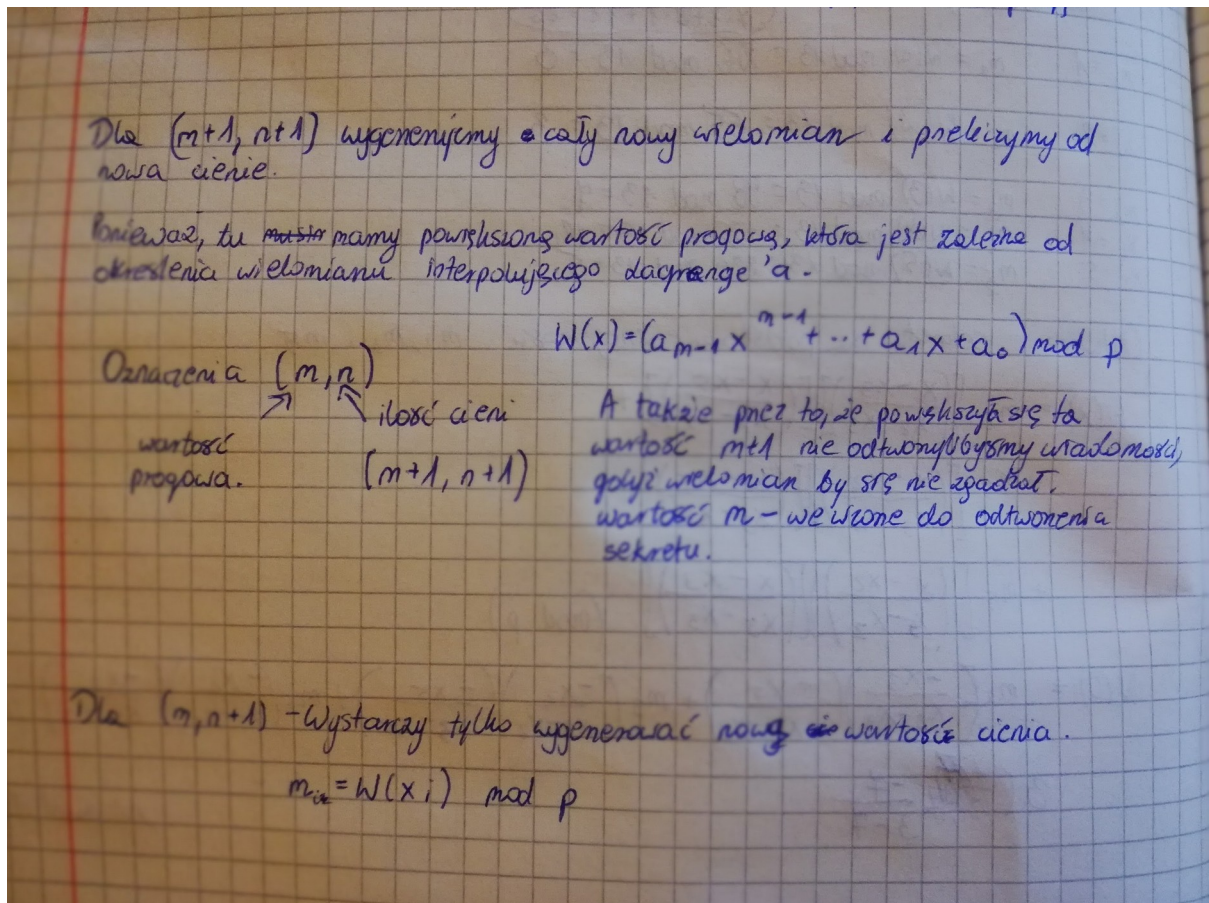 Dla (m+1, n+1) wygenerujemy cały nowy wielomian i przeliczymy od
nowa cienie.
Ponieważ, tu mamy powiększoną wartość progową, która jest zależna od
określenia wielomianu interpolującego Lagrange'a.
W(x)=(a_{m-1}x^{m-1}+...+a_1x+a_0) mod p
Oznaczenia (m,n)
ilość cieni
wartość
progowa.
(m+1, n+1)
A także przez to, że powiększyła się ta
wartość m+1 nie odtworzylibyśmy wiadomości,
gdyż wielomian by się nie zgadzał.
wartość m - ważne do odtworzenia
sekretu.
Dla (m,n+1) - Wystarczy tylko wygenerować nową wartość cienia.
= W(xi) mod p